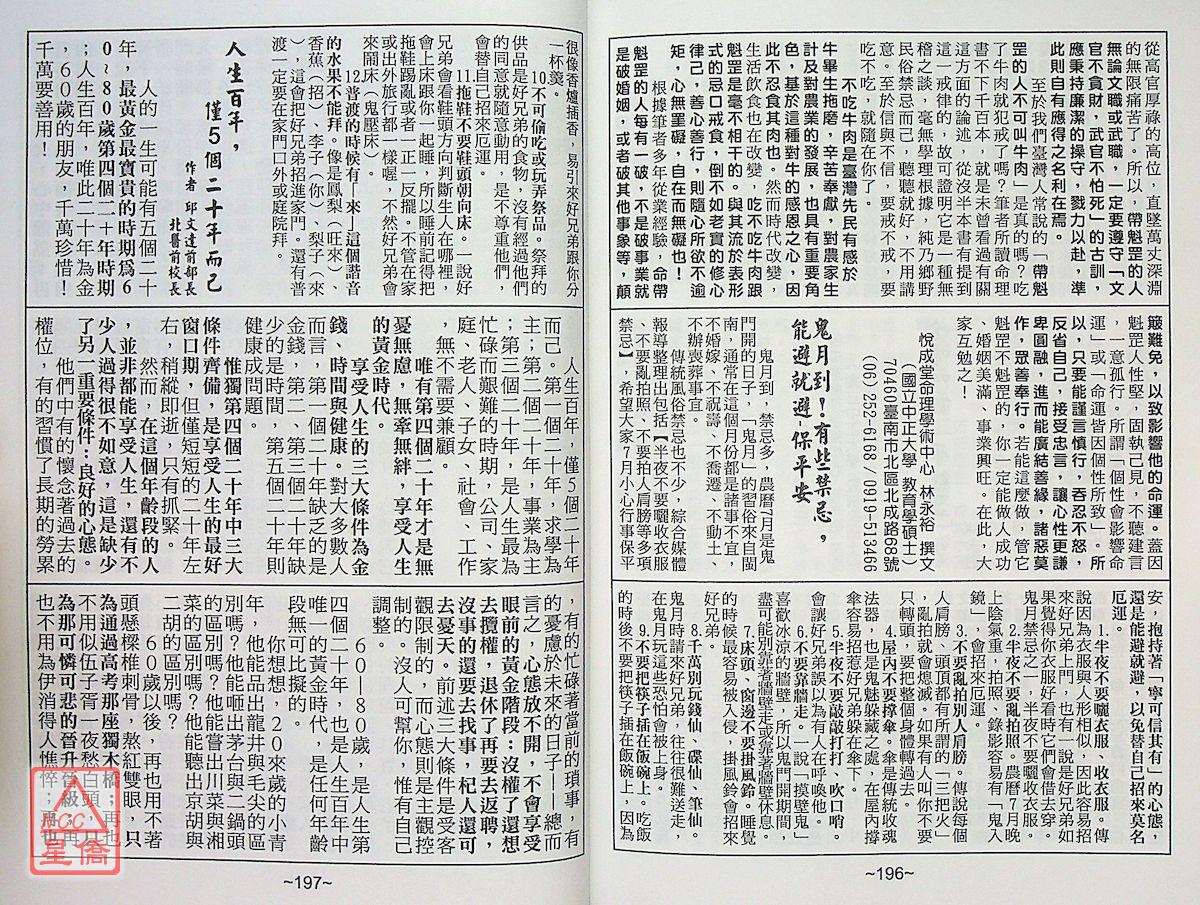 從高官厚祿的高位，直墜萬丈深淵
的無限痛苦了。所以，帶魁罡的人
無論文職或武職，一定要遵守「文
官不貪財，武官不怕死」的古訓，
應秉持廉潔的操守，戮力以赴，準
此則自有應得之名利在焉。
至於我們臺灣人常說的「帶魁
罡的人不可叫牛肉」是真的嗎？吃
了牛肉就犯戒了嗎？筆者所讀命理
書不下千百本，就是未曾看過有關
這方面的論述，從沒半本書有提到
這一戒律的，故可證明它是一種無
稽之談，毫無學理根據，純乃鄉野
民俗禁忌而己，聽聽就好，不用講
意。至於信與不信，要戒不戒，要
吃不吃，就隨在你了。
不吃牛肉是臺灣先民有感於
牛畢生拖磨，辛苦奉獻，對農家生
計及對農業的發展，也具有重要角
色，基於這種對牛的感恩之心，因
此不忍食其肉也。然而時代改變，
生活飲食也在改變，吃不吃牛肉跟
魁罡是毫不相干的。與其流於表形
式的忌口戒食，倒不如老實的修心
律己，善心善行，則隨心所欲不逾
矩，心無罣礙，自在而無礙也！
根據筆者多年從業經驗，命帶
魁罡的人每有一破，不是破事業就
是破婚姻，或者破其他事象等，顛
簸難免，以致影響他的命運。蓋因
魁罡人性堅，固執己見，不聽建言
，一意孤行。所謂「個性會影響命
運」或「命運皆因個性所致」。所
以，只要能謹言慎行，吞忍不怒，
反省自己，接受忠言，讓心性更謙
卑圓融，進而能廣結善緣，諸惡莫
作，眾善奉行。若能這麼做，管它
魁罡不魁罡的，你一定能做人成功
、婚姻美滿、事業興旺。在此，大
家互勉之！
悅成堂命理學術中心 林永裕 撰文
（國立中正大學 教育學碩士）
70460臺南市北區北成路68號
（06）252-6168／0919-513466
鬼月到！有些禁忌，
能避就避-保平安
鬼月到，禁忌多，農曆7月是鬼
門開的日子，「鬼月」的習俗來自閩
南，通常在這個月份都是諸事不宜，
不婚嫁、不祝壽、不喬遷、不動土、
不辦喪葬事宜。
傳統風俗禁忌也不少，綜合媒體
報導整理出包括【半夜不要曬收衣服
、不要亂拍照、不要拍人肩膀等多項
禁忌】，希望大家7月小心行事保平
安，抱持著「寧可信其有」的心態，
還是能避就避，以免替自己招來莫名
厄運。
1.半夜不要曬衣服、收衣服。傳
說因為衣服與人形相似，因此容易招
來好兄弟上門，也有一說是好兄弟如
果覺得你衣服好看時它們會借去穿。
鬼月禁忌之一，半夜不要曬收衣服。
2.半夜不要亂拍照。農曆7月晚
上陰氣重，拍照、錄影容易有「鬼入
鏡」，會招來厄運。
3.不要亂拍別人肩膀。傳說每個
人肩膀、頭頂都有所謂的「三把火」
，亂拍就會熄滅。如果有人叫你不要
只轉頭，要把整個身體轉過去。
4.屋內不要撐傘。傘是傳統收魂
法器，也是鬼魅躲藏之處，在屋內撐
傘容易招惹好兄弟躲在傘下。
5.半夜不要敲敲打打、吹口哨。
會讓好兄弟誤以為有人在呼喚他。
6.不要靠牆走。一說「摸壁鬼」
喜歡冰涼的牆壁，所以鬼門開期間，
盡可能別靠著牆壁走或靠著牆壁休息。
7.床頭、窗邊不要掛風鈴。睡覺
的時候最容易被入侵，掛風鈴會招來
好兄弟。
8.千萬別玩錢仙、碟仙、筆仙。
鬼月時請來好兄弟，往往很難送走，
在鬼月玩這些恐怕會被上身。
9.不要把筷子插在飯碗上。吃飯
的時後不要把筷子插在飯碗上，因為
~196~
很像香爐插香，易引來好兄弟跟你分
一杯羹。
10.不可偷吃或玩弄祭品。祭拜的
供品是好兄弟的食物，沒有經過他們
的同意就隨意動用，是不尊重他們，
會替自己招來厄運。
11.拖鞋不要鞋頭朝向床。一說好
兄弟會看鞋頭方向判斷生人在哪裡，
會上床跟你一起睡，所以睡前記得把
拖鞋踢亂或者一正一反擺。不管在家
或出外旅行都一樣喔，不然好兄弟會
來鬧床（鬼壓床）。
12.普渡的時候有—來—這個諧音
的水果不能拜。像是鳳梨（旺來）、
香蕉（招）、李子（你）、梨子（來
），這會把好兄弟招進家門。還有普
渡一定要在家門口外或庭院拜。
人生百年，
僅5個二十年而已
作者 邱文達前部長
北醫前校長
人的一生可能有五個二十
年，最黃金最寶貴的時期為6
0～80歲的第四個二十年時期
；人生百年，唯此二十年為金
，60歲的朋友，千萬珍惜！
千萬要善用！
人生百年，僅5個二十年
而己。第一個二十年，求學為
主；第二個二十年，事業為主
；第三個二十年，是人生最為
忙碌而艱難的時期，公司、家
庭、老人、子女、社會、工作
，無不需要兼顧。
唯有第四個二十年才是無
憂無慮，無牽無絆，享受人生
的黃金時代。
享受人生的三大條件為金
錢、時間與健康。對大多數人
而言，第一個二十年缺乏的是
金錢，第二、第三個二十年缺
少的是時間，第五個二十年則
健康成問題。
惟獨第四個二十年中三大
條件齊備，是享受人生的最好
窗口期，但僅短短的二十年左
右，稍縱即逝，只有抓緊。
然而，在這個年齡段的人
，並非都能享受人生，還有不
少人過得很不如意，這是缺少
了另一重要條件：良好的心態。
他們中有的懷念著過去的
權位，有的習慣了長期的勞累
，有的忙碌著當前的瑣事，有
的憂慮於未來的日子—總而
言之，心態放不開，不會享受
眼前的黃金階段：沒權了還想
去攬權，退休了再要去返聘，
沒事的還要去找事，杞人還可
去憂天。前述三大條件是受客
觀限制的，而心態則是主觀控
制的。沒人可幫你，惟有自己
調整。
60—80歲，是人生第
四個二十年，也是人生百年中
唯一的黃金時代，是任何年齡
段無可比擬的。
你想想，20來歲的小青
年，他能品出龍井與毛尖的區
別嗎？他能咂出茅台與二鍋頭
的區別嗎？他能嘗出川菜與湘
菜的區別嗎？他能聽出京胡與
二胡的區別嗎？
60歲以後，再也用不著
頭懸樑椎刺骨，熬紅雙眼，只
為通過高考那座獨木橋；再也
不用似伍子胥一夜愁白頭，只
為那可憐可悲的晉升等級；再
也不用為伊消得人憔悴；再
~197~
HCC
星僑